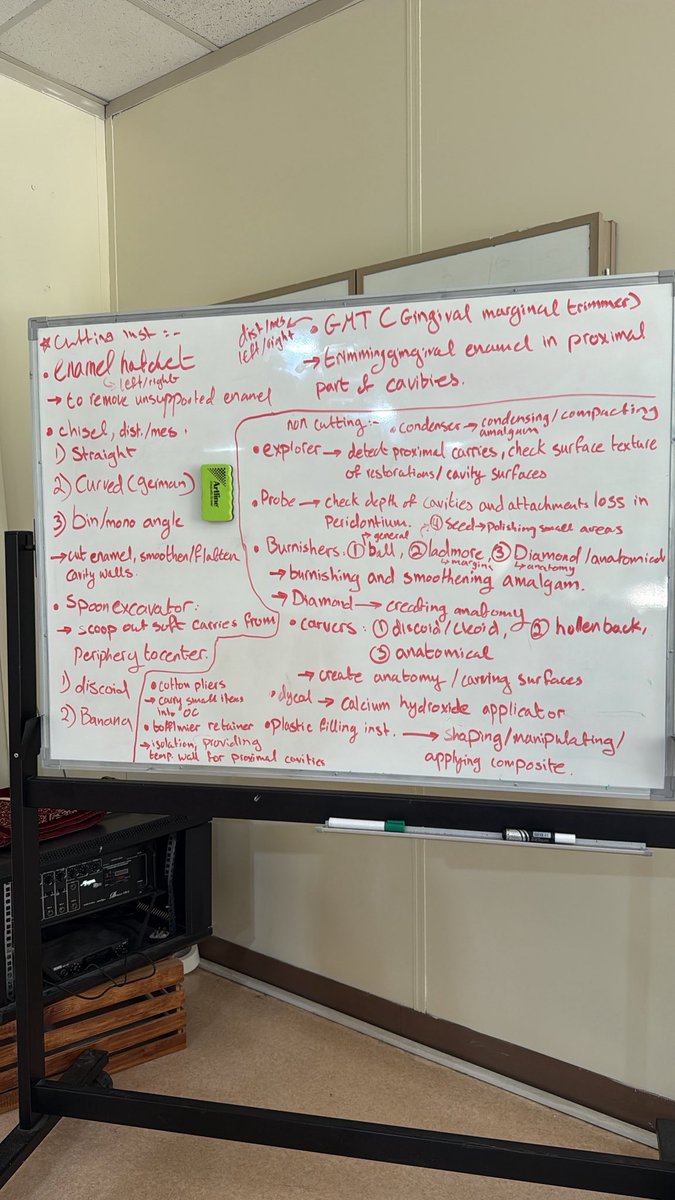 * Cutting inst :-
• enamel hatchet
↳ left/right
→ to remove unsupported enamel
• chisel, dist./mes.
1) Straight
2) Curved (german)
3) bin/mono angle
→ cut enamel, smoothen/flatten
cavity walls.
• Spoon excavator:
→ scoop out soft carries from
Periphery to center.
1) discoid
2) Banana
dist/mes ← • GMT C Gingival marginal trimmer)
left/right
→ trimming gingival enamel in proximal
part of cavities.
non cutting:- • condenser → condensing/compacting
amalgam
• explorer → detect proximal carries, check surface texture
of restorations/cavity surfaces
• Probe → check depth of cavities and attachments loss in
Peridontium. ④ seed → Polishing small areas
→ general
• Burnishers: ① ball, ② ladmore, ③ Diamond/anatomical
↳ margins ↳ anatomy
→ burnishing and smoothening amalgam.
→ Diamond → creating anatomy
• carvers: ① discoid/cleoid, ② hollenback,
③ anatomical
→ create anatomy/carving surfaces
• dycal → calcium hydroxide applicator
• Plastic filling inst. → shaping/manipulating/
applying composite.
• cotton pliers
→ carry small items
into OC
• tofflmier retainer
→ isolation, providing
temp. wall for proximal cavities
Artline